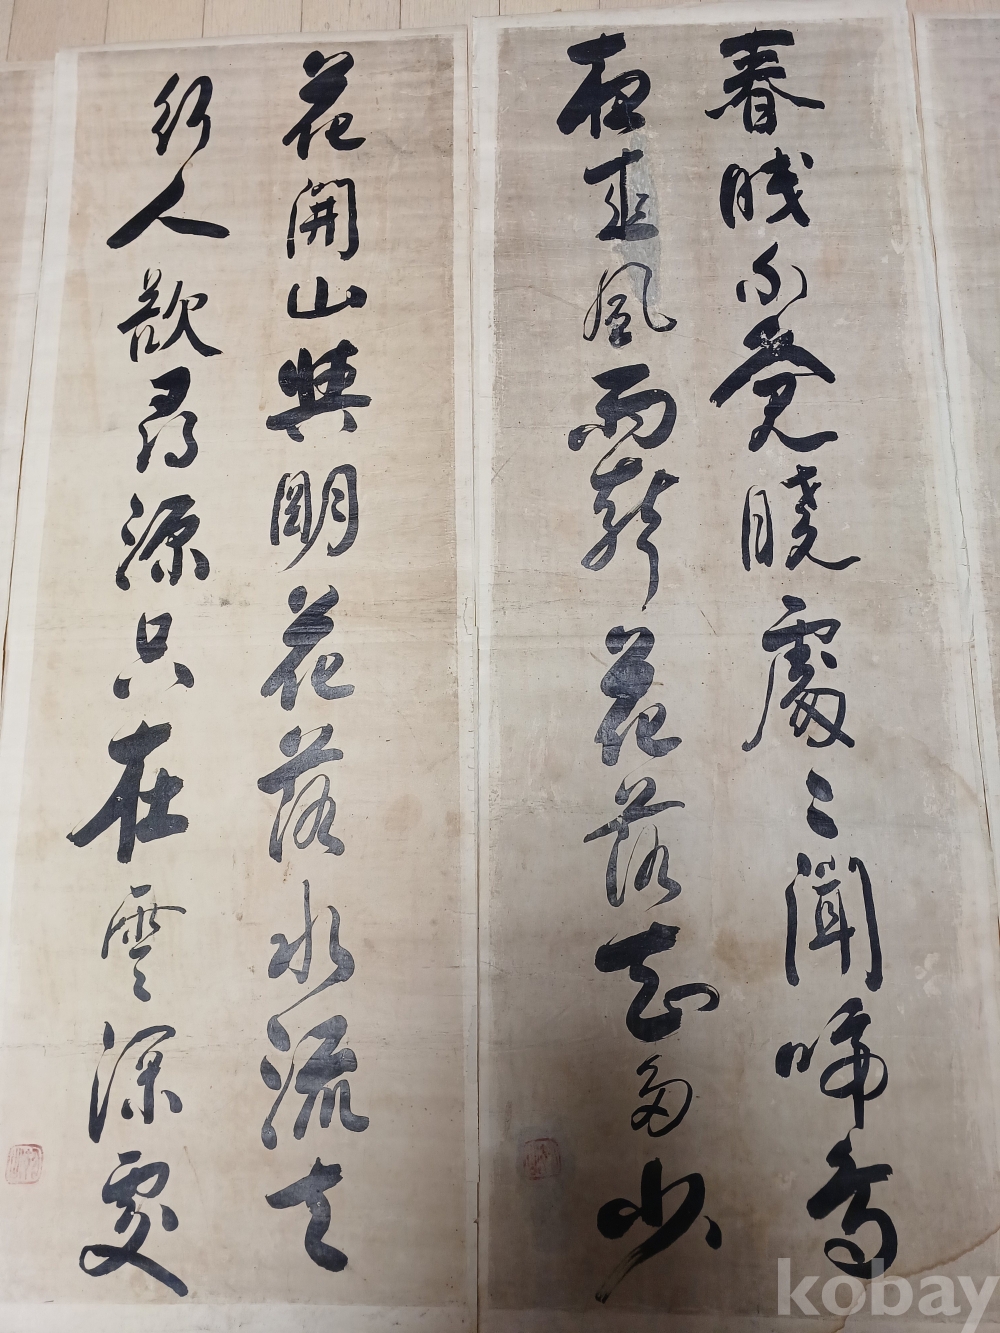 春眠不覺曉處〻聞啼鳥
夜來風雨聲花落知多少
花開山與明花落水流去
行人欲尋源只在雲深處
kobay